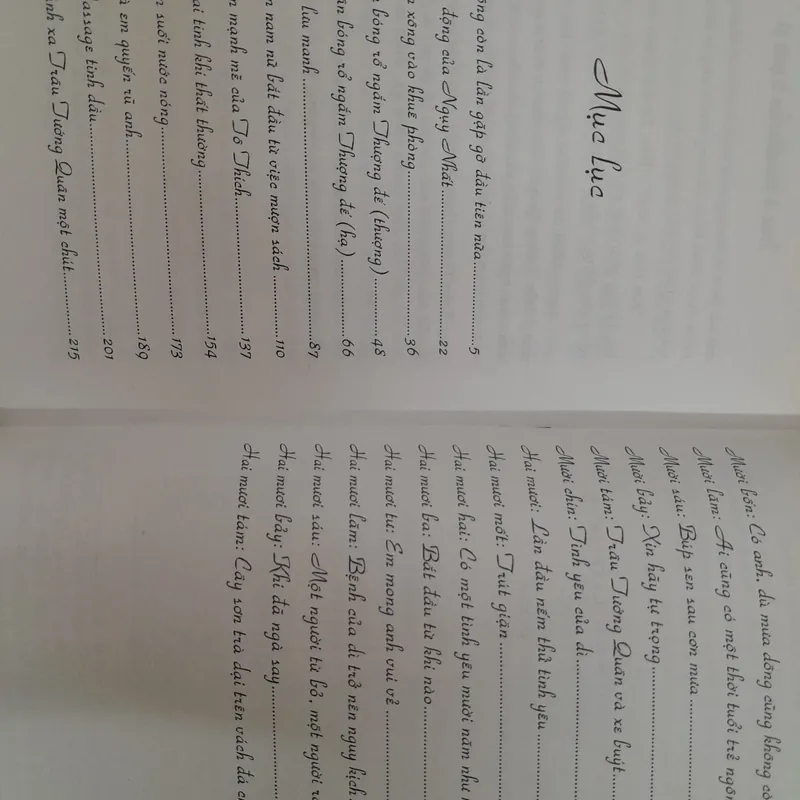 Mục lục
còn là lần gặp gỡ đầu tiên nữa....................5
động của Ngụy Nhất....................22
xông vào khuê phòng....................36
bóng rổ ngắm Thượng đế (thượng)............48
bóng rổ ngắm Thượng đế (hạ)............66
lưu manh....................87
nam nữ bắt đầu từ việc mượn sách............110
mạnh mẽ của Tô Thích....................137
tình khi thất thường....................154
suối nước nóng....................173
em quyến rũ anh....................189
tinh dầu....................201
xa Trâu Tướng Quân một chút............215
Mười bốn: Có anh, dù mưa dông cũng không
Mười lăm: Ai cũng có một thời tuổi trẻ
Mười sáu: Búp sen sau cơn mưa ............
Mười bảy: Xin hãy tự trọng....................
Mười tám: Trâu Tướng Quân và xe buýt......
Mười chín: Tình yêu của dì....................
Hai mươi: Lần đầu nếm thử tình yêu ............
Hai mươi mốt: Trút giận ....................
Hai mươi hai: Có một tình yêu mười năm như
Hai mươi ba: Bắt đầu từ khi nào............
Hai mươi tư: Em mong anh vui vẻ ............
Hai mươi lăm: Bệnh của dì trở nên nguy kịch
Hai mươi sáu: Một người từ bỏ, một người
Hai mươi bảy: Khi đã ngà say....................
Hai mươi tám: Cây sơn trà dại trên vách đá